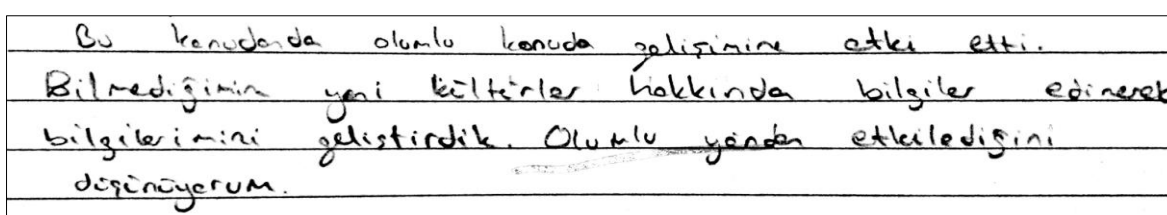 Bu konudanda olumlu konuda gelişimine etki etti.
Bilmediğimin yeni kültürler hakkında bilgiler edinerek
bilgilerimizi geliştirdik. Olumlu yönden etkilediğini
düşünüyorum.